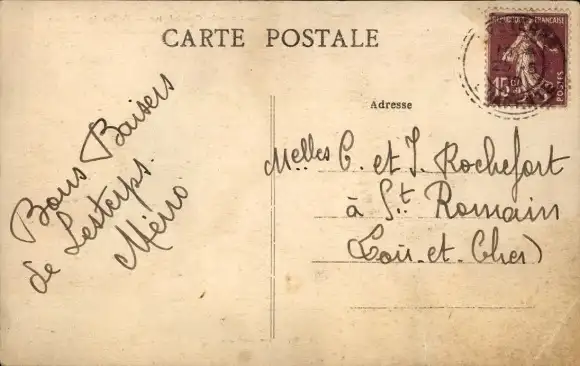 CARTE POSTALE
RÉPUBLIQUE FRANÇAISE
15c
POSTES
Adresse
Bons Baisers
de Lesterps.
Melles C. et J. Rochefort
à St. Romain
(Loir-et-Cher)